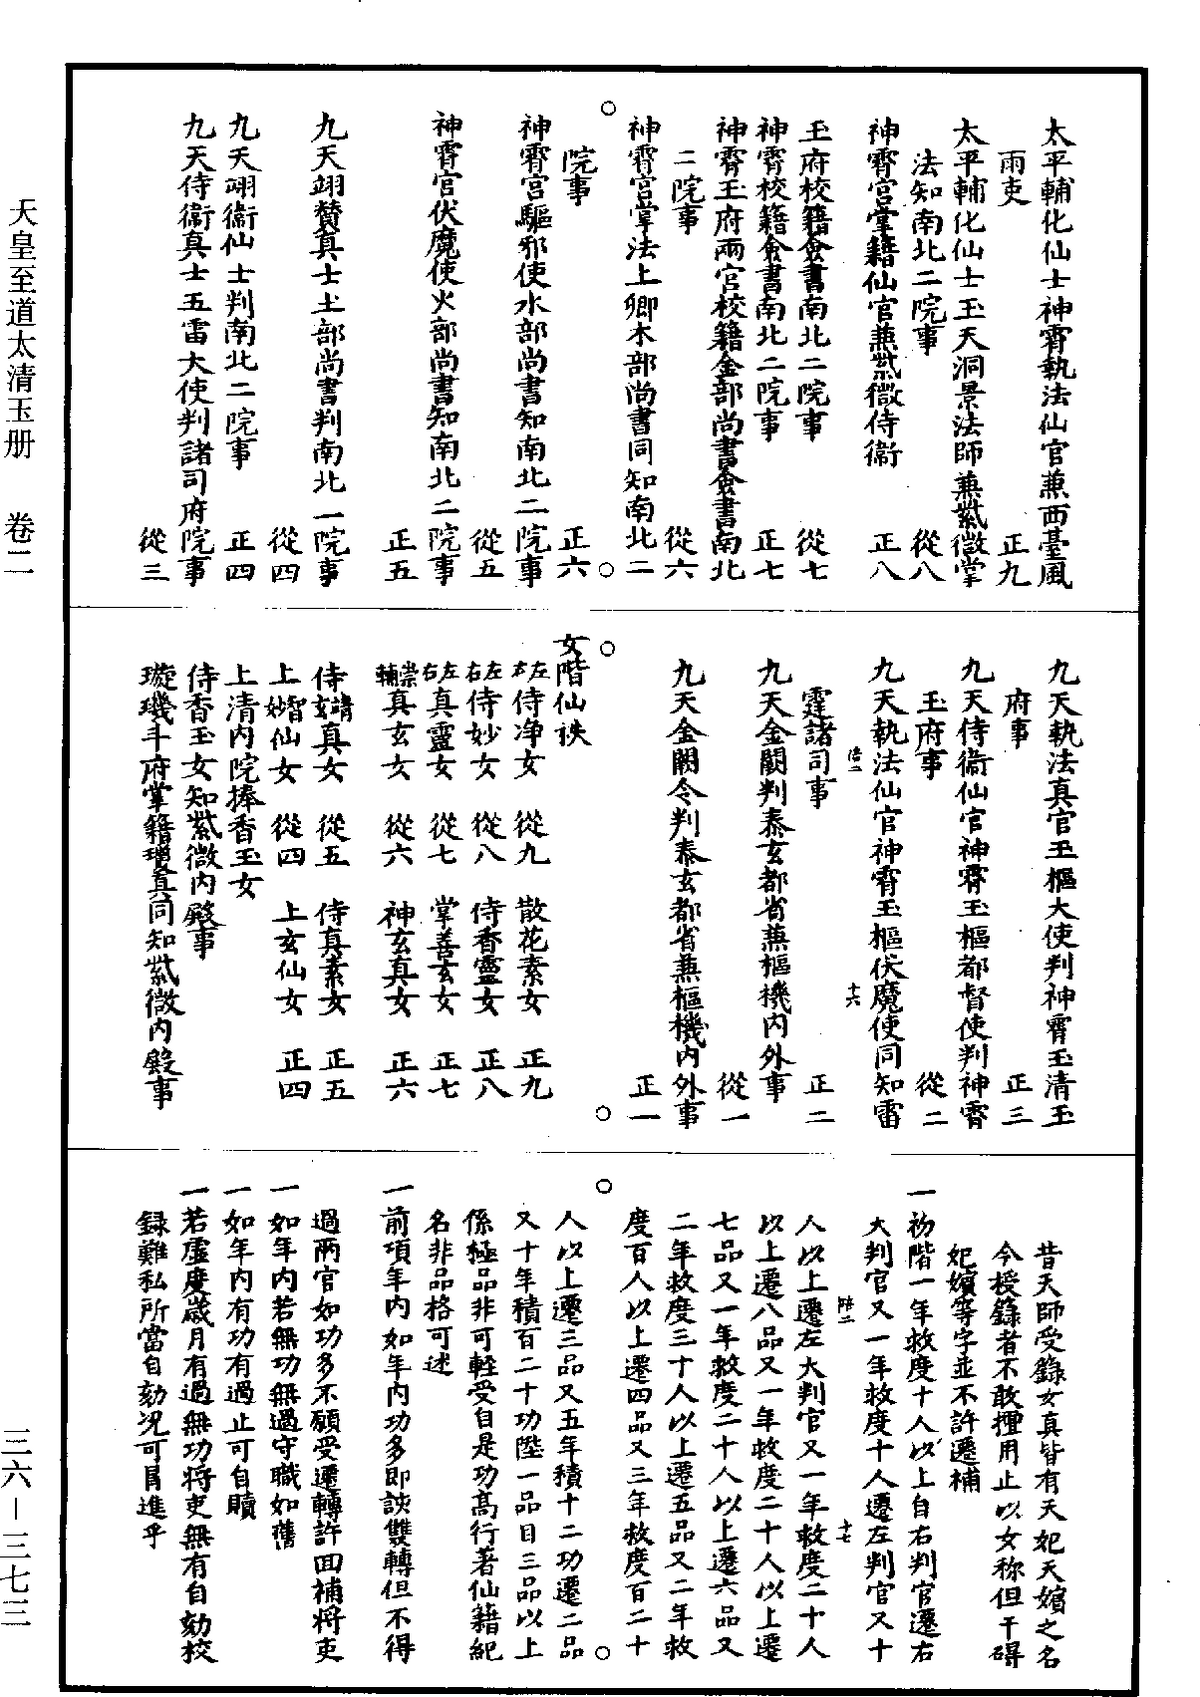 天皇至道太清玉册　卷二
三六—三七三
太平輔化仙士神霄執法仙官兼西臺風
雨吏　正九
太平輔化仙士玉天洞景法師兼紫微掌
法知南北二院事　從八
神霄宮掌籍仙官兼紫微侍衛　正八
玉府校籍僉書南北二院事　從七
神霄校籍僉書南北二院事　正七
神霄玉府兩宮校籍金部尚書僉書南北
二院事　從六
神霄宮掌法上卿木部尚書同知南北二
院事　正六
神霄宮驅邪使水部尚書知南北二院事
從五
神霄宮伏魔使火部尚書知南北二院事
正五
九天翊贊真士土部尚書判南北一院事
從四
九天翊衞仙士判南北二院事　正四
九天侍衞真士五雷大使判諸司府院事
從三
九天執法真官玉樞大使判神霄玉清玉
府事　正三
九天侍衞仙官神霄玉樞都督使判神霄
玉府事　從二
九天執法仙官神霄玉樞伏魔使同知雷
霆諸司事　正二
九天金闕判泰玄都省兼樞機內外事
從一
九天金闕令判泰玄都省兼樞機內外事
正一
女階仙秩
左右侍净女　從九　散花素女　正九
左右侍妙女　從八　侍香靈女　正八
左右真靈女　從七　掌善玄女　正七
崇輔真玄女　從六　神玄真女　正六
侍真女　從五　侍真素女　正五
上仙女　從四　上玄仙女　正四
上清內院捧香玉女
侍香玉女知紫微內殿事
璇璣斗府掌籍瓊真同知紫微內殿事
昔天師受籙女真皆有天妃天嬪之名
今授籙者不敢擅用止以女稱但干碍
妃嬪等字並不許遷補
一初階一年救度十人以上自右判官遷右
大判官又一年救度十人遷左判官又十
人以上遷左大判官又一年救度二十人
以上遷八品又一年救度二十人以上遷
七品又一年救度二十人以上遷六品又
二年救度三十人以上遷五品又二年救
度百人以上遷四品又三年救度百二十
人以上遷三品又五年積十二功遷二品
又十年積百二十功陞一品目三品以上
係極品非可輕受自是功高行著仙籍紀
名非品格可述
一前項年內如年內功多即談雙轉但不得
過兩官如功多不願受遷轉許回補將吏
一如年內若無功無過守職如舊
一如年內有功有過止可自贖
一若虛度歲月有過無功將吏無有自劾校
録難私所當自劾况可冒進乎
十六
十七